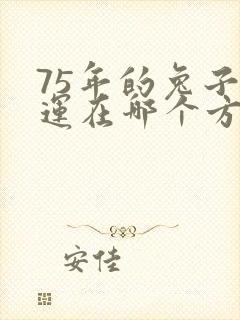 75年的兔子
運在哪个方
安佳